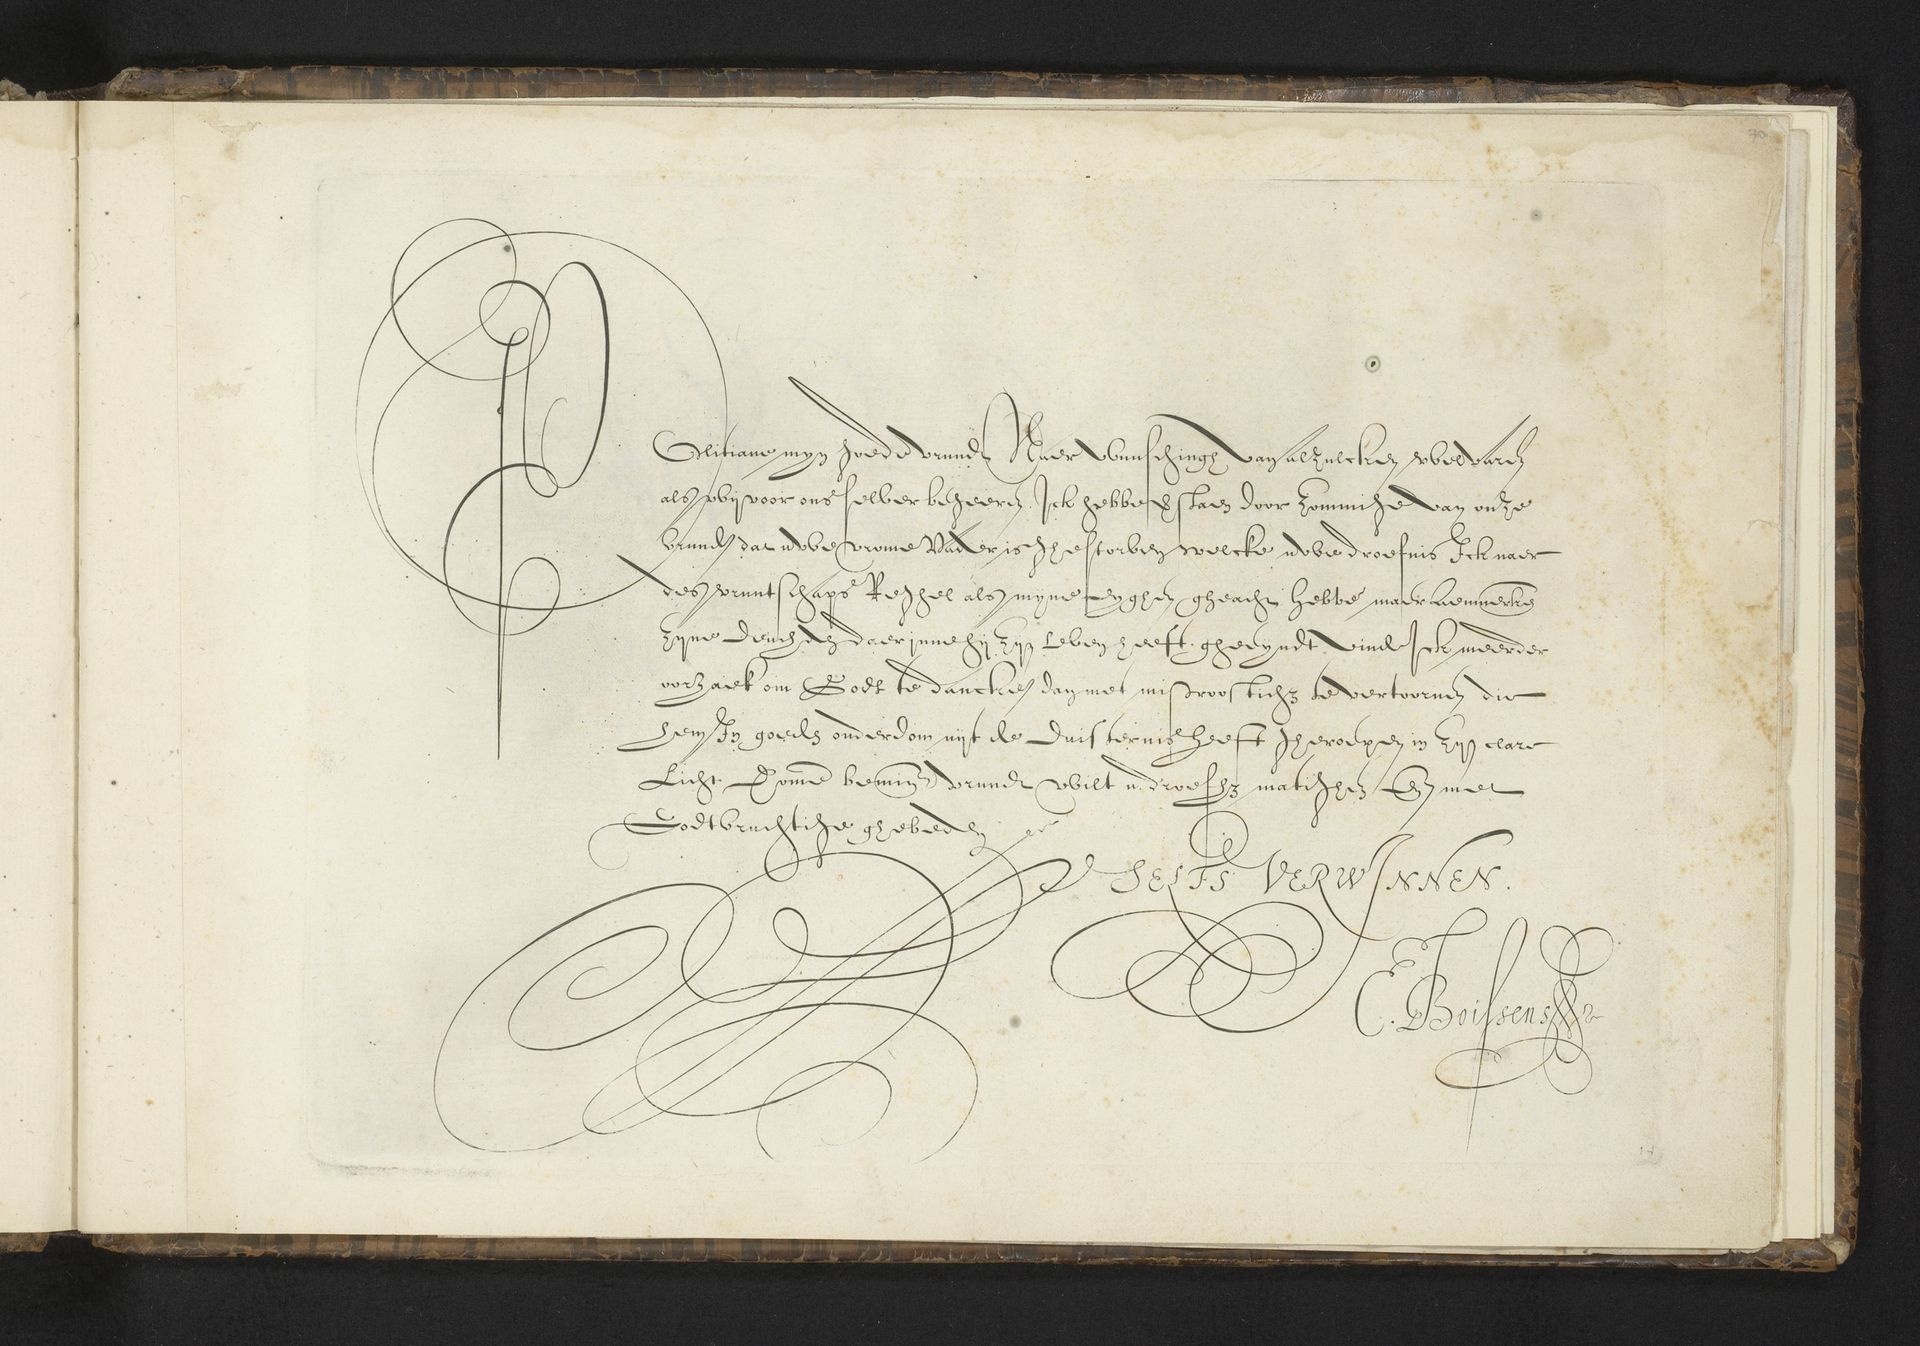 70
Politiane mijn goede vrundt Naer wunschingh van alzulcken welvaren
als wij voor ons selver begheeren. Ick hebbe verstaen door zommighe van onze
vrunden dat uwe vrome Vader is ghestorven, welcke uwe droefnis Ick naer
des vruntschaps Reghel als myne eyghen gheacht hebbe maer aenmerkende
zyne deuchden daer inne hij zijn leven heeft gheeyndt. vinde Ick meerder
oorzaek om Godt te dancken dan met mistroosticheyt te vertoornen die
hem In goeden ouderdom uijt de duisternis heeft gheroepen in zijn clare
Licht Daerom beminde vrundt wilt u droefheyt matighen Ende met
Godtvruchtighe ghebeden etc.
SELFS VERWINNEN.
C. Boissens
14